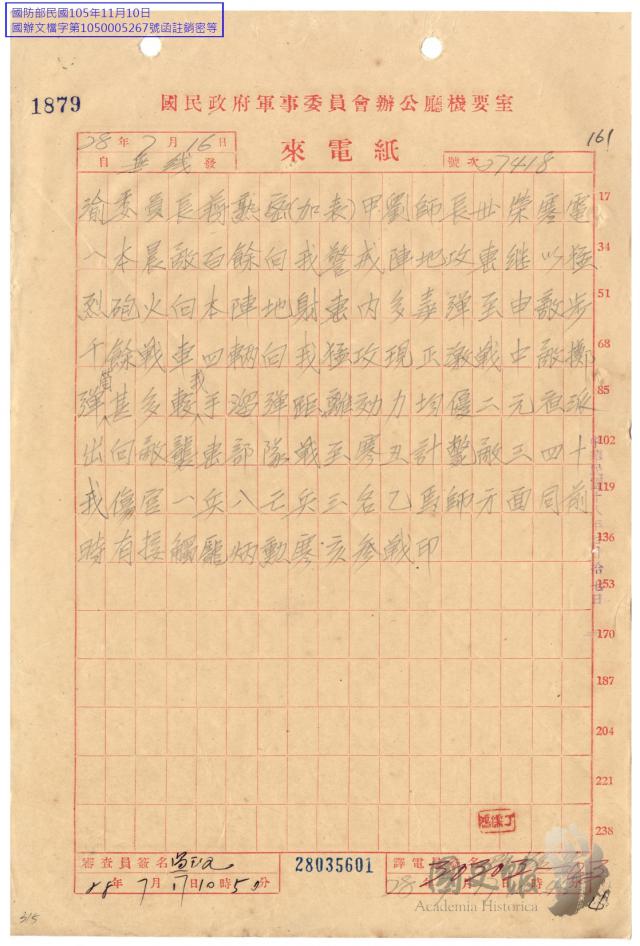 國防部民國105年11月10日
國辦文檔字第1050005267號函註銷密等
1879
國民政府軍事委員會辦公廳機要室
161
28年7月16日
自 無線 發
來電紙
號次 27418
渝委員長蔣熟密(加表)甲劉師長世榮寒電
17
八本晨敵百餘向我警戒陣地攻擊继以猛
34
烈砲火向本陣地射擊内多毒彈至申敵步
51
千餘戰車四輛向我猛攻現正激戰中敵擲
68
彈甚多較我手溜彈距離効力均優二元夜派
85
出向敵襲擊部隊戰至寒丑計斃敵三四十
102
我傷官一兵八亡兵三名乙馬師方面同前
119
時有接觸龐炳勳寒亥參戰印
136
153
170
187
204
221
238
審查員簽名
28035601
譯電員簽名
28年7月17日10時50分
28
國史館
Academia Historica
315